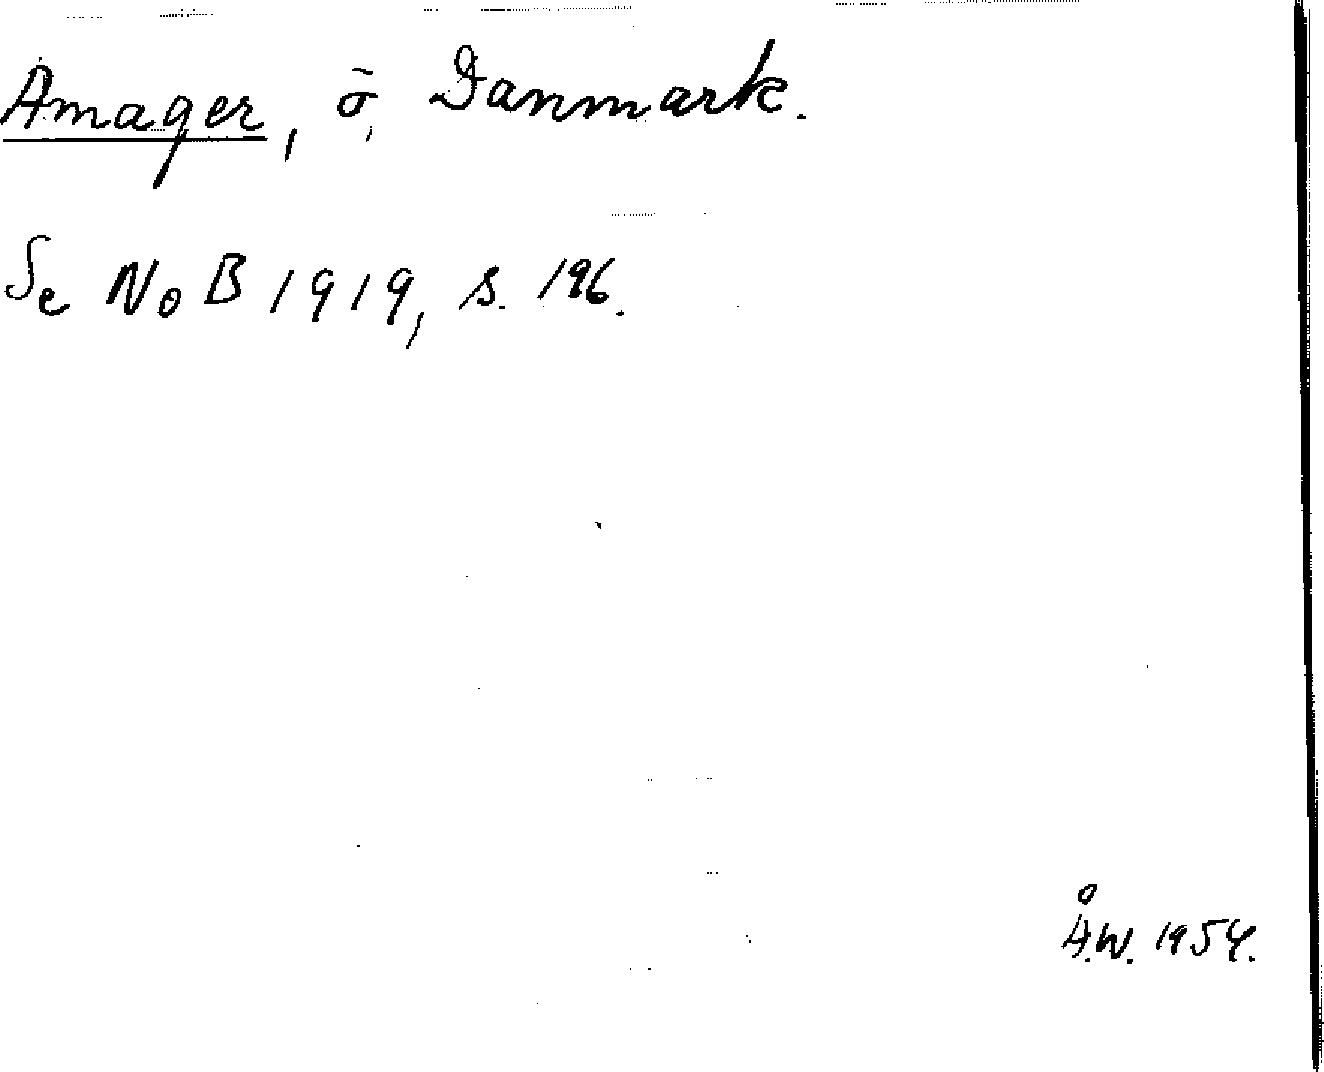 Amager, ö, Danmark.
Se NoB 1919, s. 196.
Å.W. 1954.